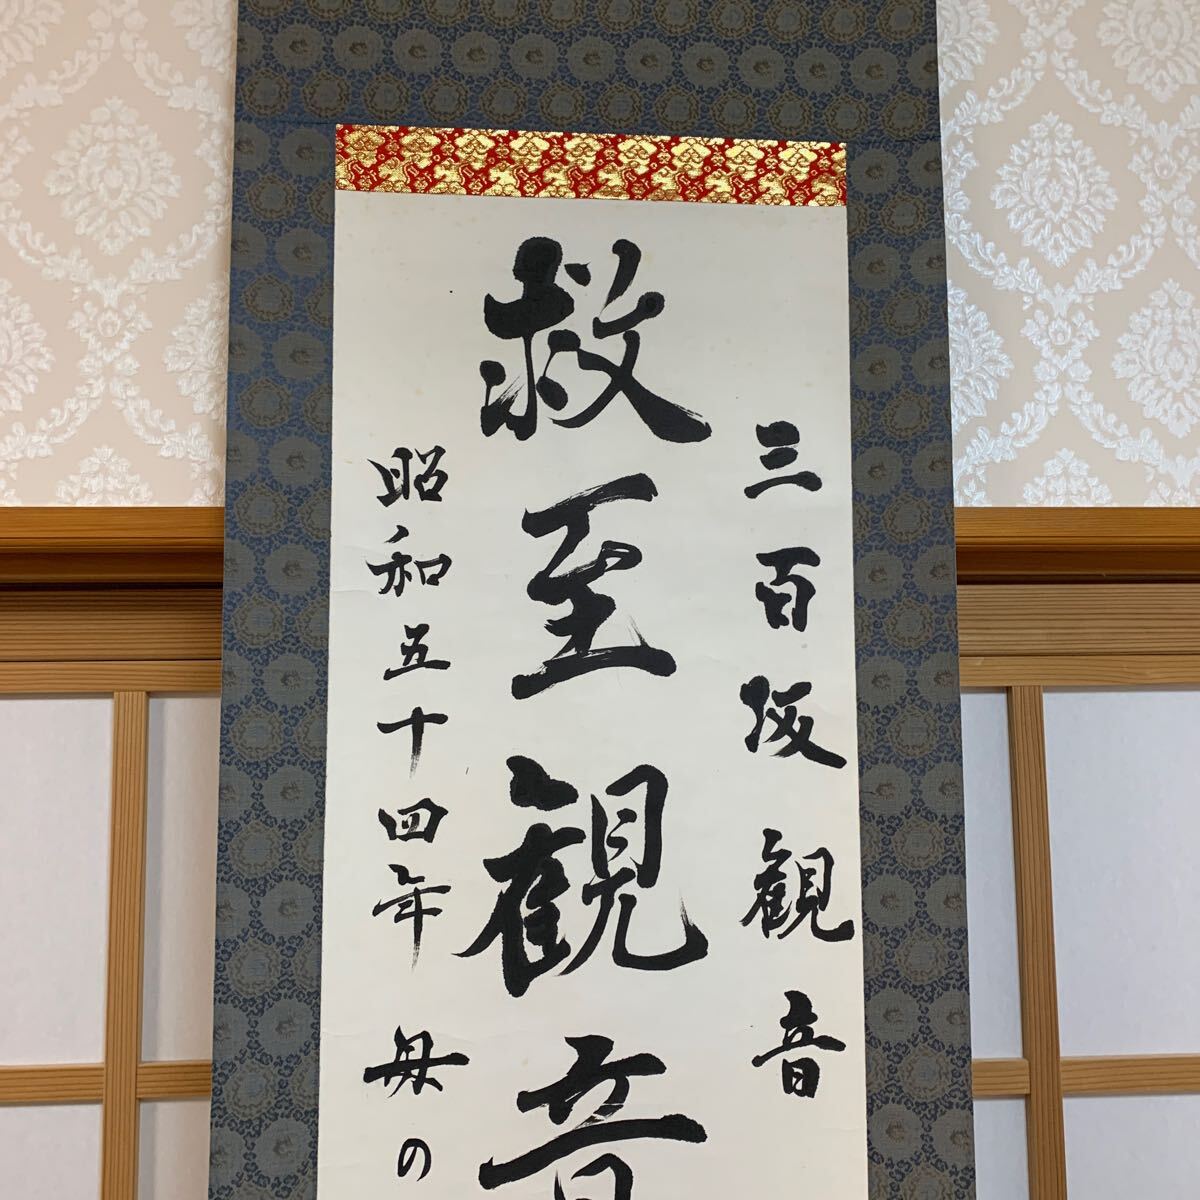 三百坂観音
救至観音
昭和五十四年 母の